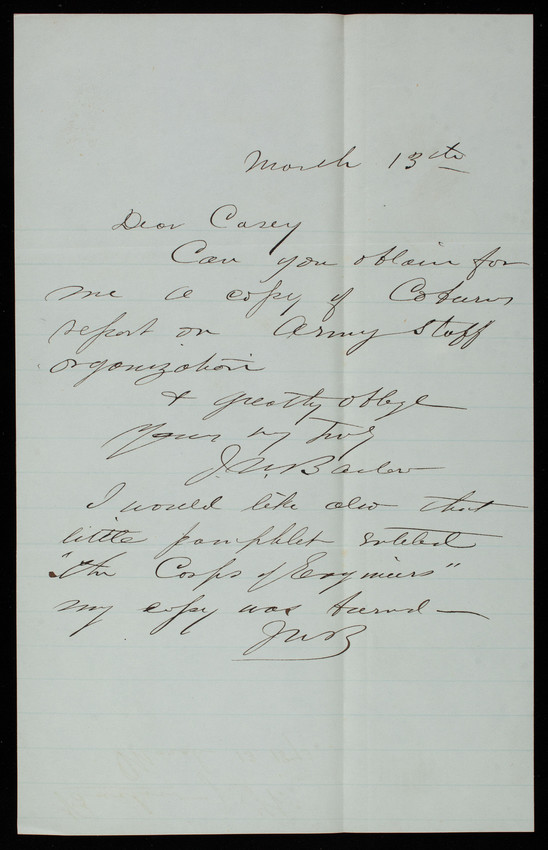 March 13th
Dear Casey
Can you obtain for
me a copy of Coburns
report on Army Staff
organization
& greatly oblige
Yours very truly
J.W. Barlow
I would like also that
little pamphlet entitled
"The Corps of Engineers"
my copy was burned —
JWB